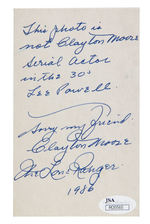 This photo is
not Clayton Moore
Serial Actor
in the 30s
Lee Powell.
Sorry my friend.
Clayton Moore
The Lone Ranger
1986
JSA